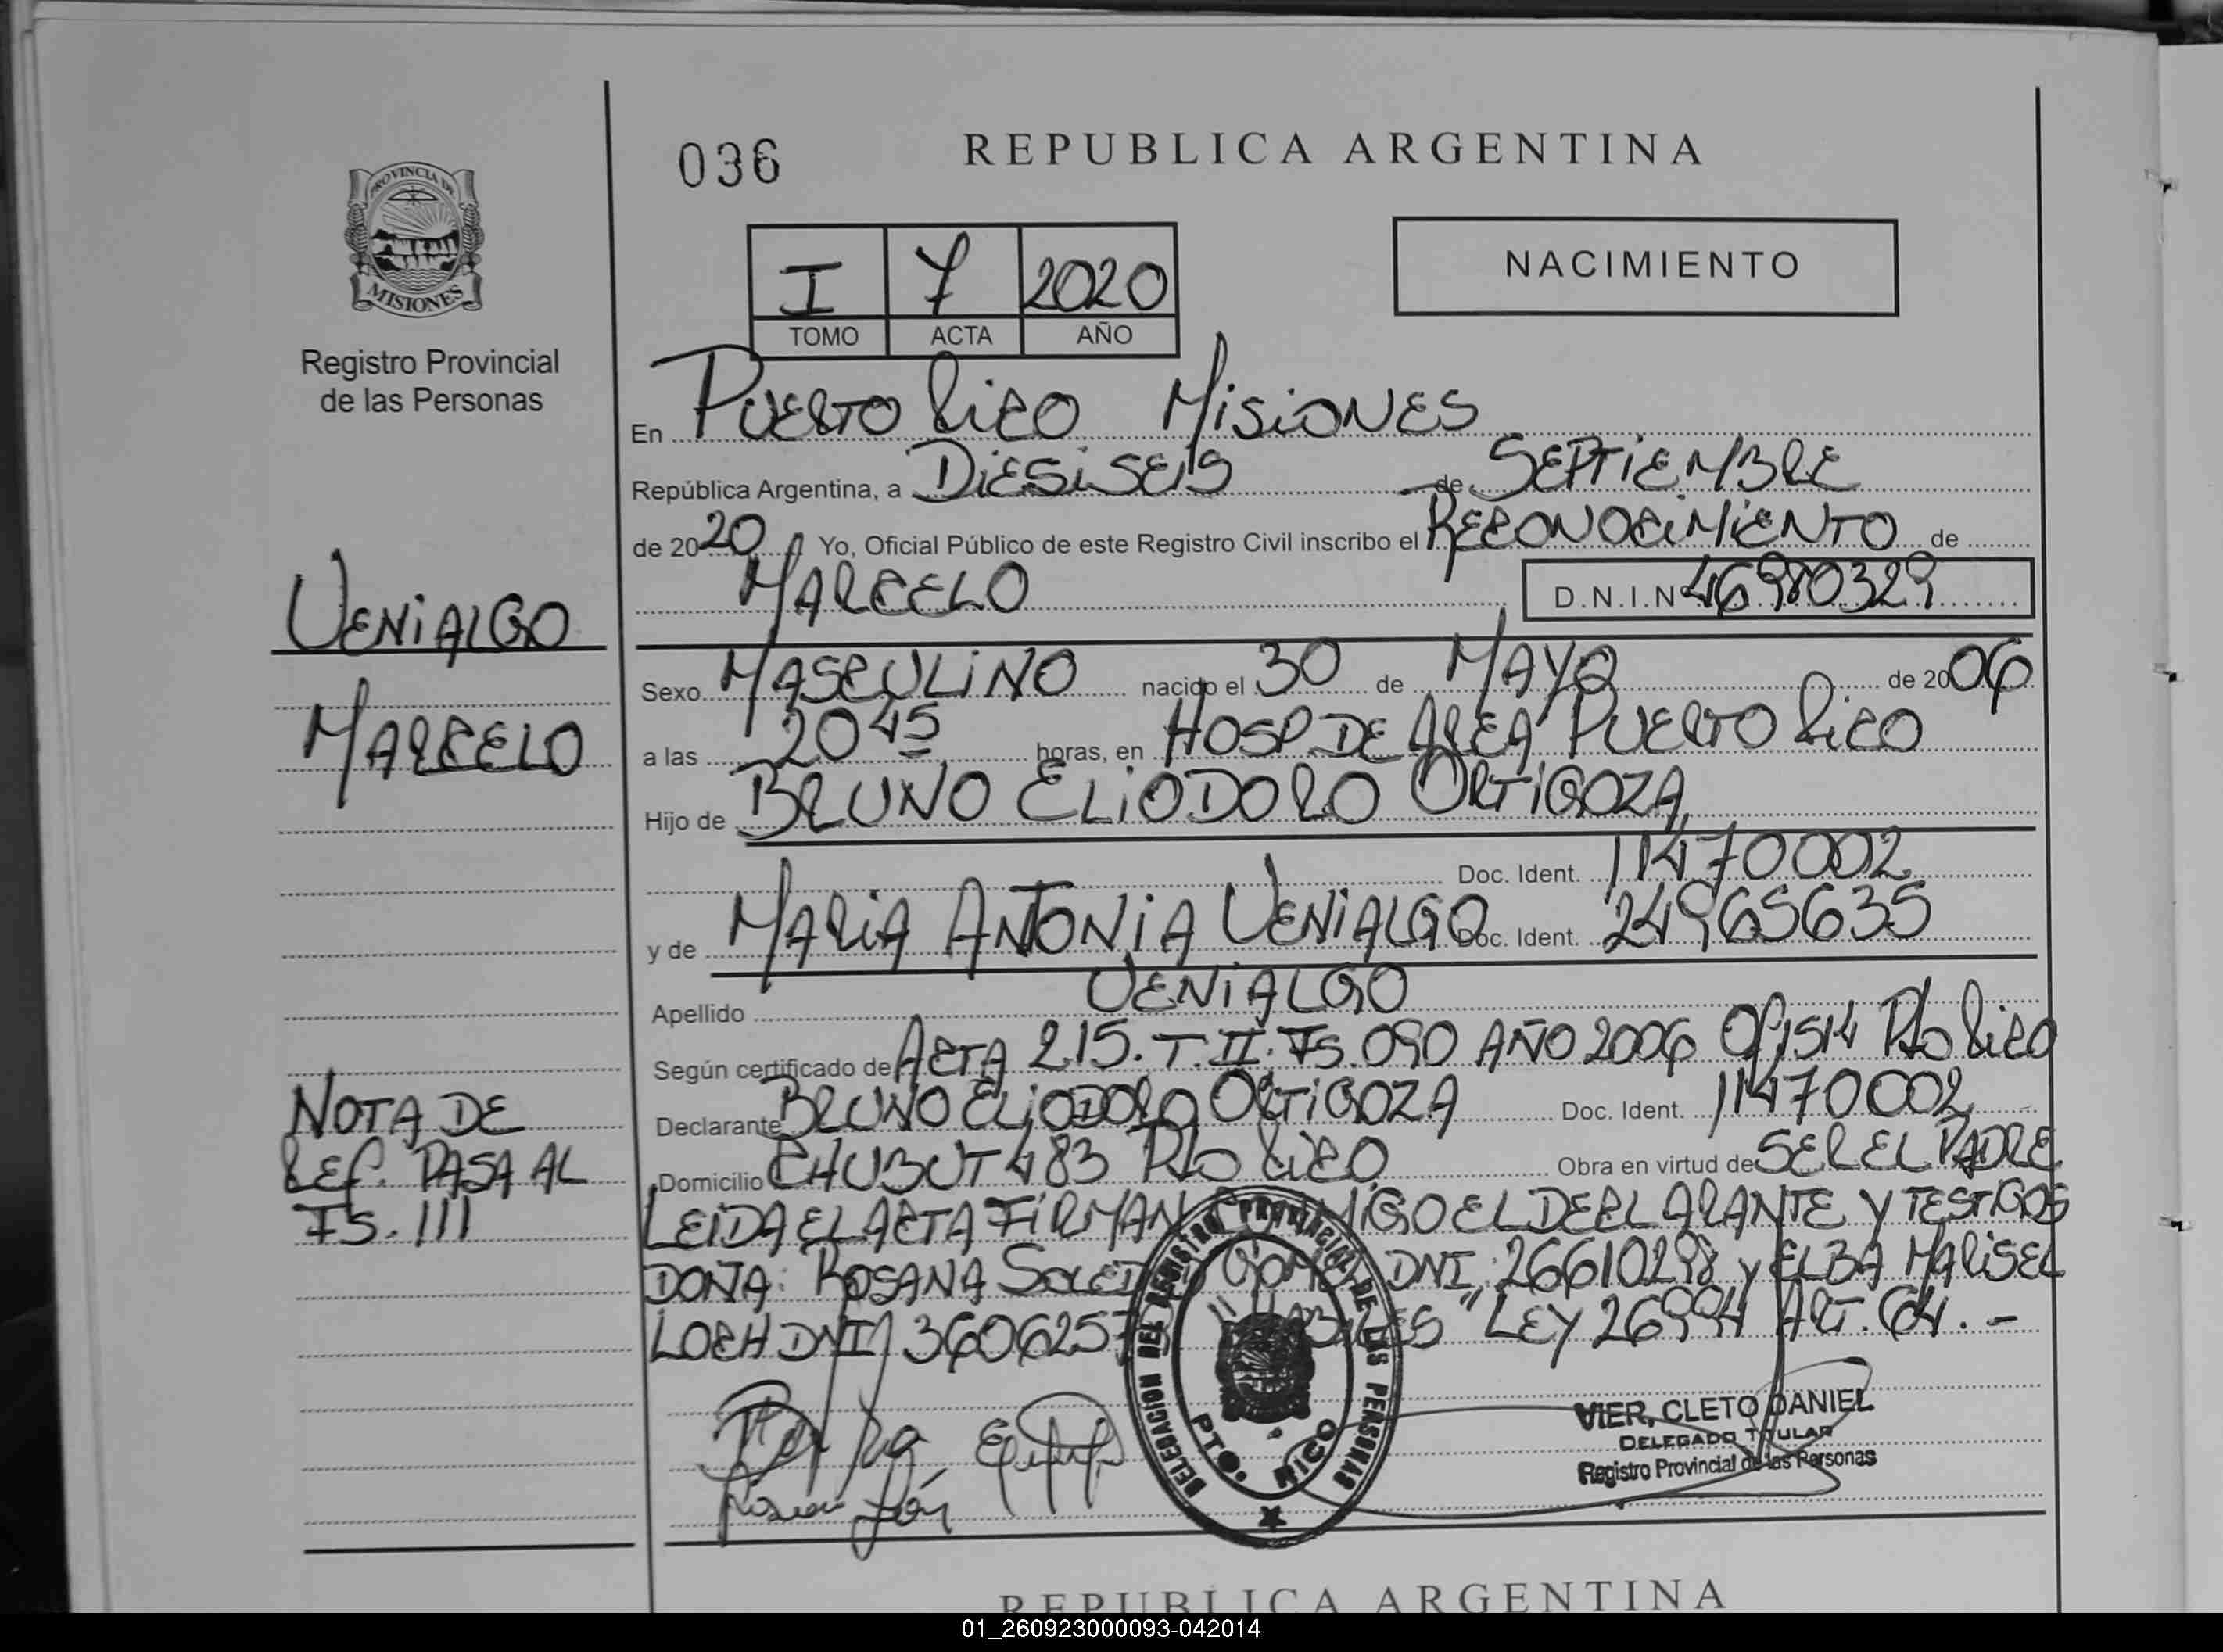 036
REPUBLICA ARGENTINA
PROVINCIA DE
MISIONES
Registro Provincial
de las Personas
I 7 2020
TOMO ACTA AÑO
NACIMIENTO
En PUERTO RICO MISIONES
República Argentina, a DIESISEIS de SEPTIEMBRE
de 2020 Yo, Oficial Público de este Registro Civil inscribo el RECONOCIMIENTO de
MARCELO D.N.I.N 46980329
VENIALGO
MARCELO
Sexo MASCULINO nacido el 30 de MAYO de 2006
a las 20 45 horas, en HOSP DE AREA PUERTO RICO
Hijo de BRUNO ELIODORO ORTIGOZA
Doc. Ident. 11470002
y de MARIA ANTONIA VENIALGO Doc. Ident. 24965635
Apellido VENIALGO
Según certificado de ACTA 215. T. II. FS. 090 AÑO 2006 Of 1514 Pto RICO
Declarante BRUNO ELIODORO ORTIGOZA Doc. Ident. 11470002
Domicilio CHUBUT 483 Pto RICO Obra en virtud de SER EL PADRE
LEIDA EL ACTA FIRMAN CONMIGO EL DECLARANTE Y TESTIGOS
DOÑA: ROSANA SOLEDAD DNI: 26610298 y ELBA MARISEL
LOCH DNI 3606257 "LEY 26994 ART. 64. -
NOTA DE
REF. PASA AL
FS. 111
DELEGACION DEL REGISTRO PROVINCIAL DE LAS PERSONAS
PTO. RICO
VIER, CLETO DANIEL
DELEGADO TITULAR
Registro Provincial de las Personas
REPUBLICA ARGENTINA
01_260923000093-042014